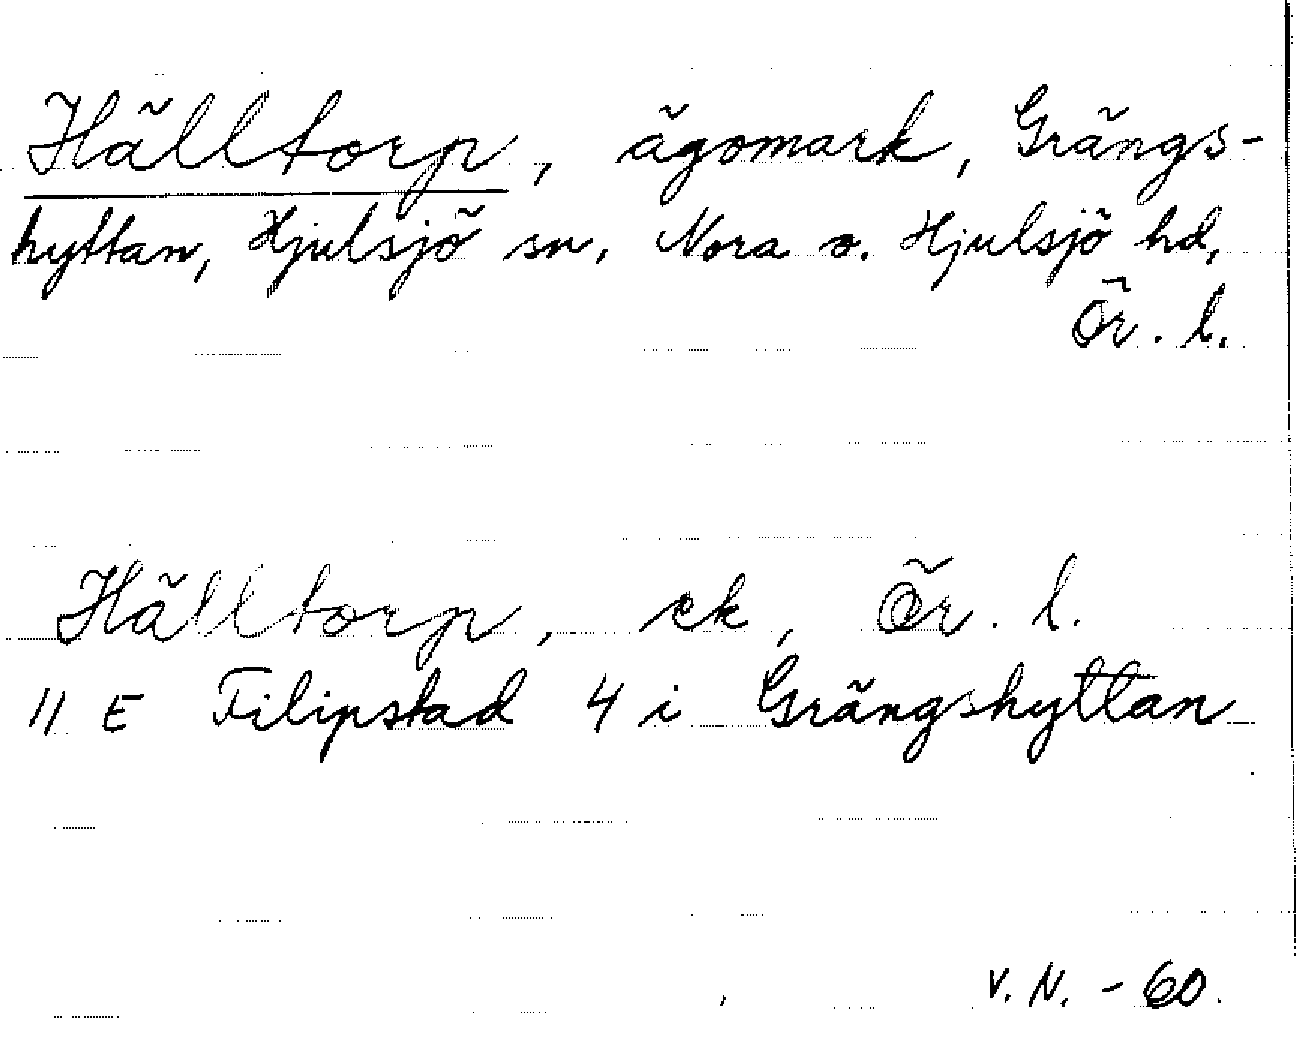 Hälltorp, ägomark, Grängs-
hyttan, Hjulsjö sn, Nora o. Hjulsjö hd,
Ör. l.
Hälltorp, ek, Ör. l.
11 E Filipstad 4 i Grängshyttan
V. N. - 60.